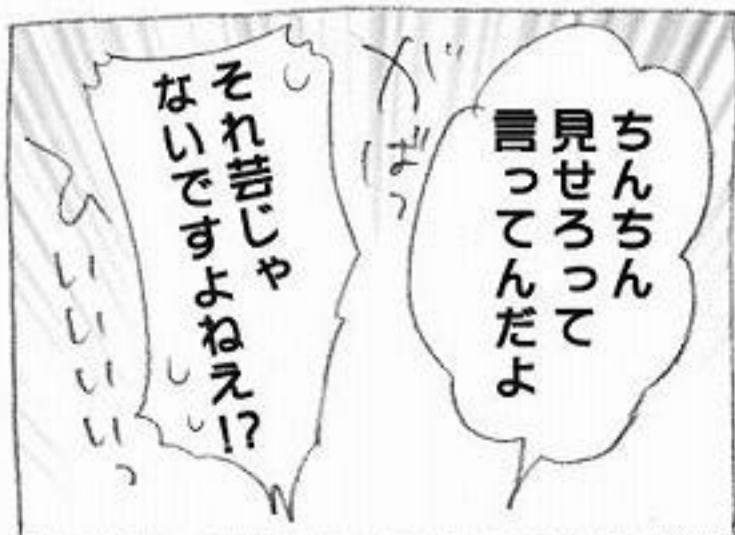 ちんちん
見せろって
言ってんだよ
がばっ
それ芸じゃ
ないですよねえ!?
ひいいいいっ